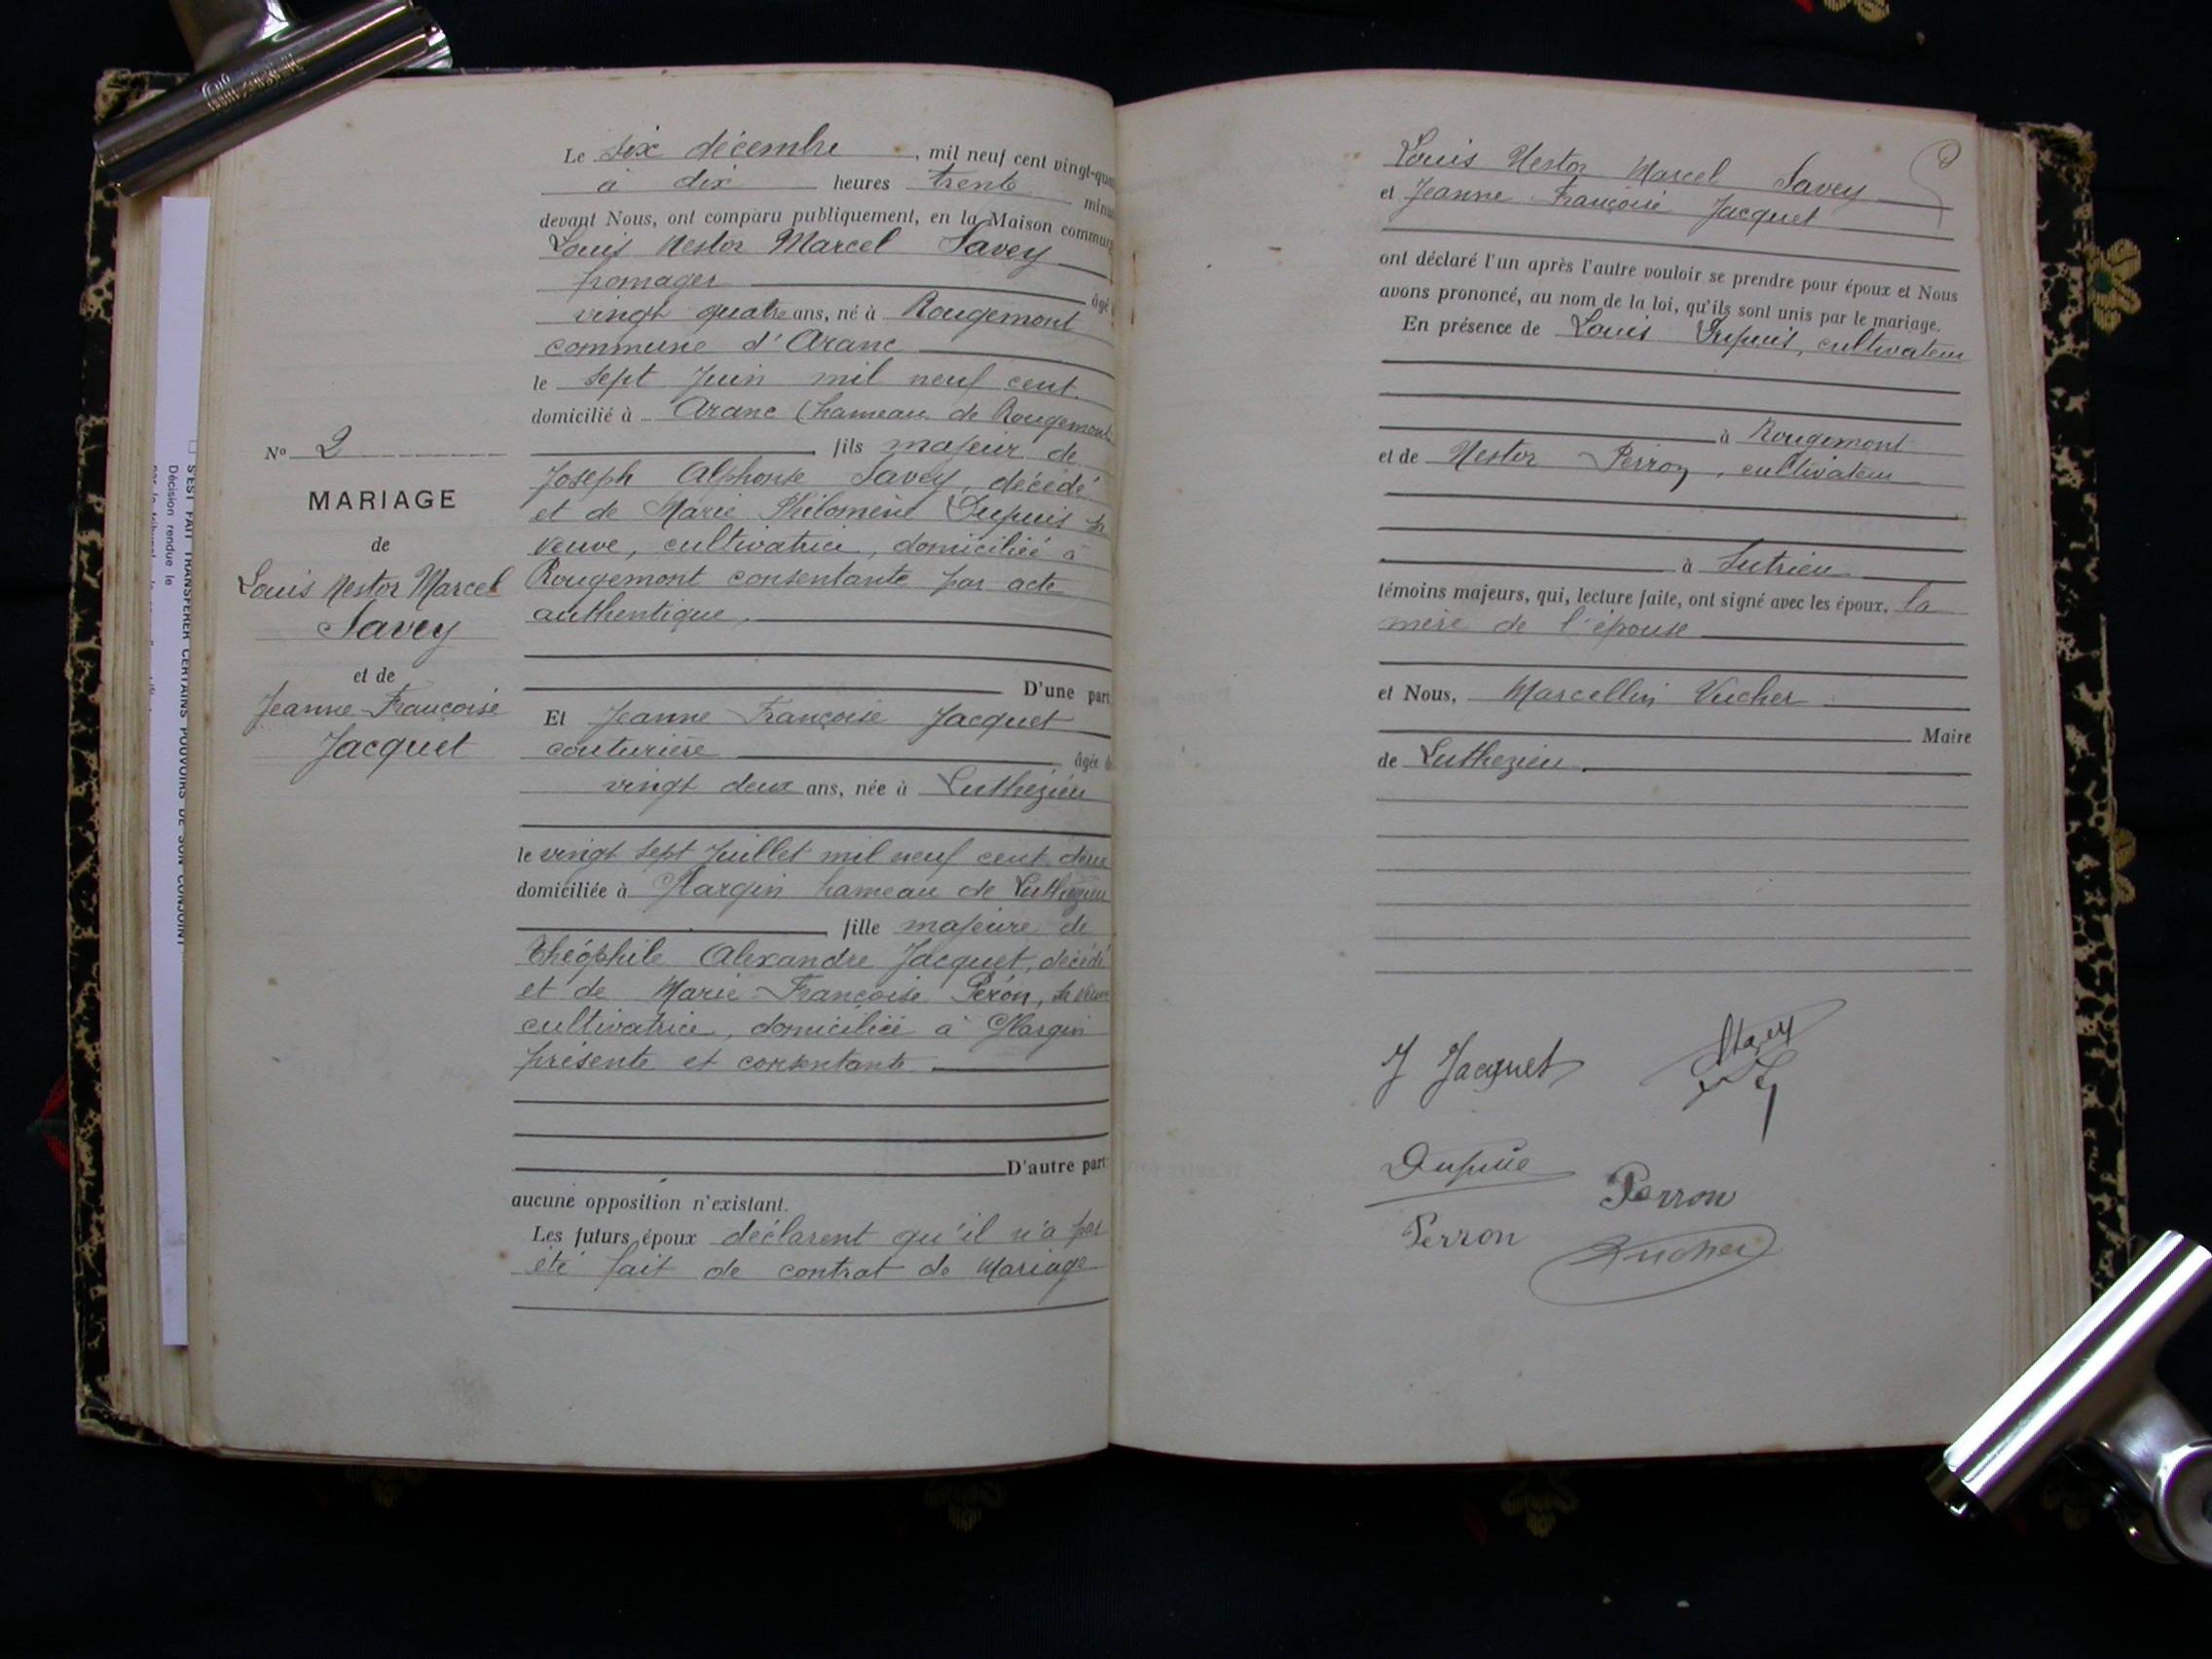 N° 2
MARIAGE
de
Louis Nestor Marcel
Savey
et de
Jeanne Françoise
Jacquet
Le six décembre, mil neuf cent vingt-qua
à dix heures trente minu
devant Nous, ont comparu publiquement, en la Maison commun
Louis Nestor Marcel Savey
fromager âgé
vingt quatre ans, né à Rougemont
commune d'Aranc
le sept Juin mil neuf cent
domicilié à Aranc (hameau de Rougemont
fils majeur de
Joseph Alphonse Savey, décédé
et de Marie Philomène Dupuis sa
veuve, cultivatrice, domiciliée à
Rougemont consentante par acte
authentique.
D'une part
Et Jeanne Françoise Jacquet
couturière âgée d
vingt deux ans, née à Luthézieu
le vingt sept Juillet mil neuf cent deux
domiciliée à Glargin hameau de Luthézieu
fille majeure de
Théophile Alexandre Jacquet, décédé
et de Marie Françoise Péron, sa veuve
cultivatrice, domiciliée à Glargin
présente et consentante
D'autre part
aucune opposition n'existant.
Les futurs époux déclarent qu'il n'a pas
été fait de contrat de Mariage
Louis Nestor Marcel Savey
et Jeanne Françoise Jacquet
ont déclaré l'un après l'autre vouloir se prendre pour époux et Nous
avons prononcé, au nom de la loi, qu'ils sont unis par le mariage.
En présence de Louis Dupuis, cultivateur
à Rougemont
et de Nestor Perron, cultivateur
à Sutrieu
témoins majeurs, qui, lecture faite, ont signé avec les époux, la
mère de l'épouse
et Nous, Marcellin Vucher
Maire
de Luthezieu.
J Jacquet
Savey
Dupuis
Perron
Perron
Vucher
S'EST FAIT TRANSFÉRER CERTAINS POUVOIRS DE SON CONJOINT
Décision rendue le